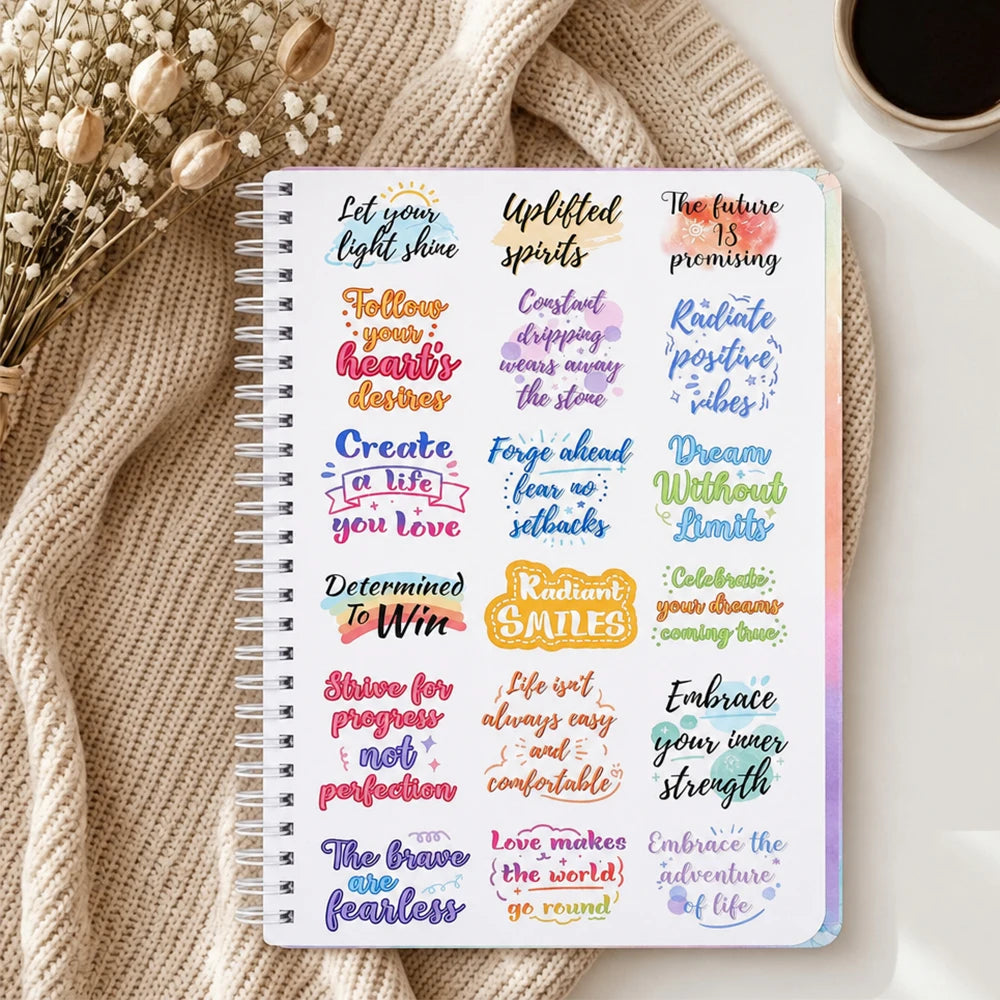 Let your
light shine
Uplifted
spirits
The future
IS
promising
Follow
your
heart's
desires
Constant
dripping
wears away
the stone
Radiate
positive
vibes
Create
a life
you Love
Forge ahead
fear no
setbacks
Dream
Without
Limits
Determined
To Win
Radiant
SMILES
Celebrate
your dreams
coming true
Strive for
progress
not
perfection
Life isn't
always easy
and
comfortable
Embrace
your inner
strength
The brave
are
fearless
Love makes
the world
go round
Embrace the
adventure
of life